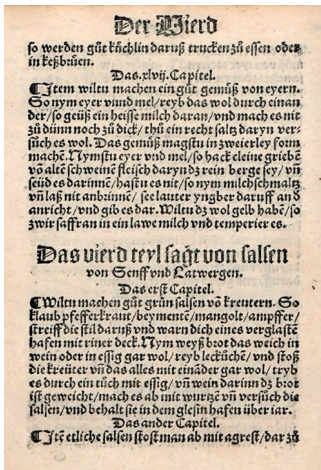 Der Vierd
so werden gůt kuͤchlin daruß trucken zů essen oder
in keßbruͤen.
Das .xlvij. Capitel.
¶ Item wiltu machen ein gůt gemuͤß von eyern.
So nym eyer vnnd mel / reyb das wol durch einan
der / so geüß ein heisse milch daran / vnd mach es nit
zů dünn noch zů dick / thů ein recht saltz daryn ver-
sůch es wol. Das gemuͤß magstu in zweierley form
machē. Nymstu eyer vnd mel / so hack kleine griebē
vō altē schweinē fleisch daryn dz rein berge sey / vn̄
seüd es darinnē / hastu es nit / so nym milchschmaltz
vn̄ laß nit anbrinnē / see lauter yngber daruff an d
anricht / vnd gib es dar. Wiltu dz wol gelb habē / so
zwir saffran in ein lawe milch vnd temperier es.
Das vierd teyl sagt von salsen
von Senff vnd Latwergen.
Das erst Capitel.
¶ Wiltu machen gůt grün salsen vō kreutern. So
klaub pfefferkraut / beymentē / mangolt / ampffer /
streiff die stil daruß vnd warn dich eines verglastē
hafen mit einer deck. Nym weyß brot das weich in
wein oder in essig gar wol / reyb lecküchē / vnd stoß
die kreüter vn̄ das alles mit eināder gar wol / tryb
es durch ein tůch mit essig / vn̄ wein darinn dz brot
ist geweicht / mach es ab mit wurtzē vn̄ versůch die
salsen / vnd behalt sie in dem glesin hafen über iar.
Das ander Capitel.
¶ Itē etliche salsen stost man ab mit agrest / dar zů